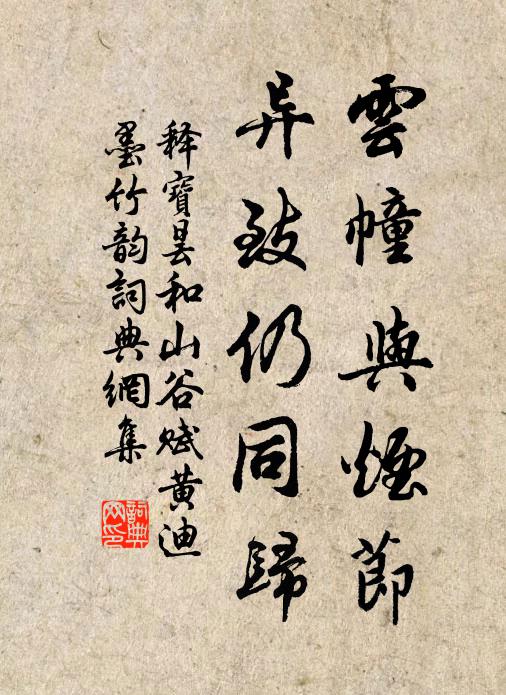 雲幢與煙節
异致仍同歸
释寶曇和山谷赋黄迪
墨竹韵詞典網集
詞典網印